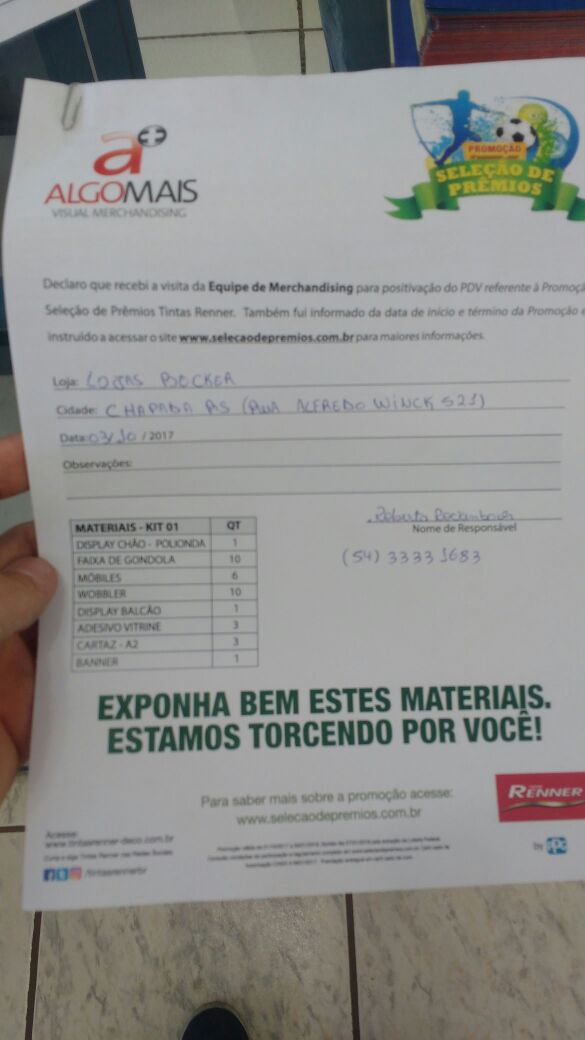 a+
ALGOMAIS
VISUAL MERCHANDISING
PROMOÇÃO
SELEÇÃO DE
PRÊMIOS
Declaro que recebi a visita da Equipe de Merchandising para positivação do PDV referente à Promoçã
Seleção de Prêmios Tintas Renner. Também fui informado da data de início e término da Promoção e
instruído a acessar o site www.selecaodepremios.com.br para maiores informações.
Loja: LOJAS BECKER
Cidade: CHAPADA RS (RUA ALFREDO WINCK 521)
Data: 03/10 / 2017
Observações:
Roberta
Nome de Responsável
(54) 3333 1683
MATERIAIS - KIT 01 QT
DISPLAY CHÃO - POLIONDA 1
FAIXA DE GONDOLA 10
MÓBILES 6
WOBBLER 10
DISPLAY BALCÃO 1
ADESIVO VITRINE 3
CARTAZ - A2 3
BANNER 1
EXPONHA BEM ESTES MATERIAIS.
ESTAMOS TORCENDO POR VOCÊ!
Para saber mais sobre a promoção acesse:
www.selecaodepremios.com.br
RENNER
by PPG
Acesse:
www.tintasrenner-deco.com.br
Curta e siga Tintas Renner nas Redes Sociais.
/tintasrennerbr